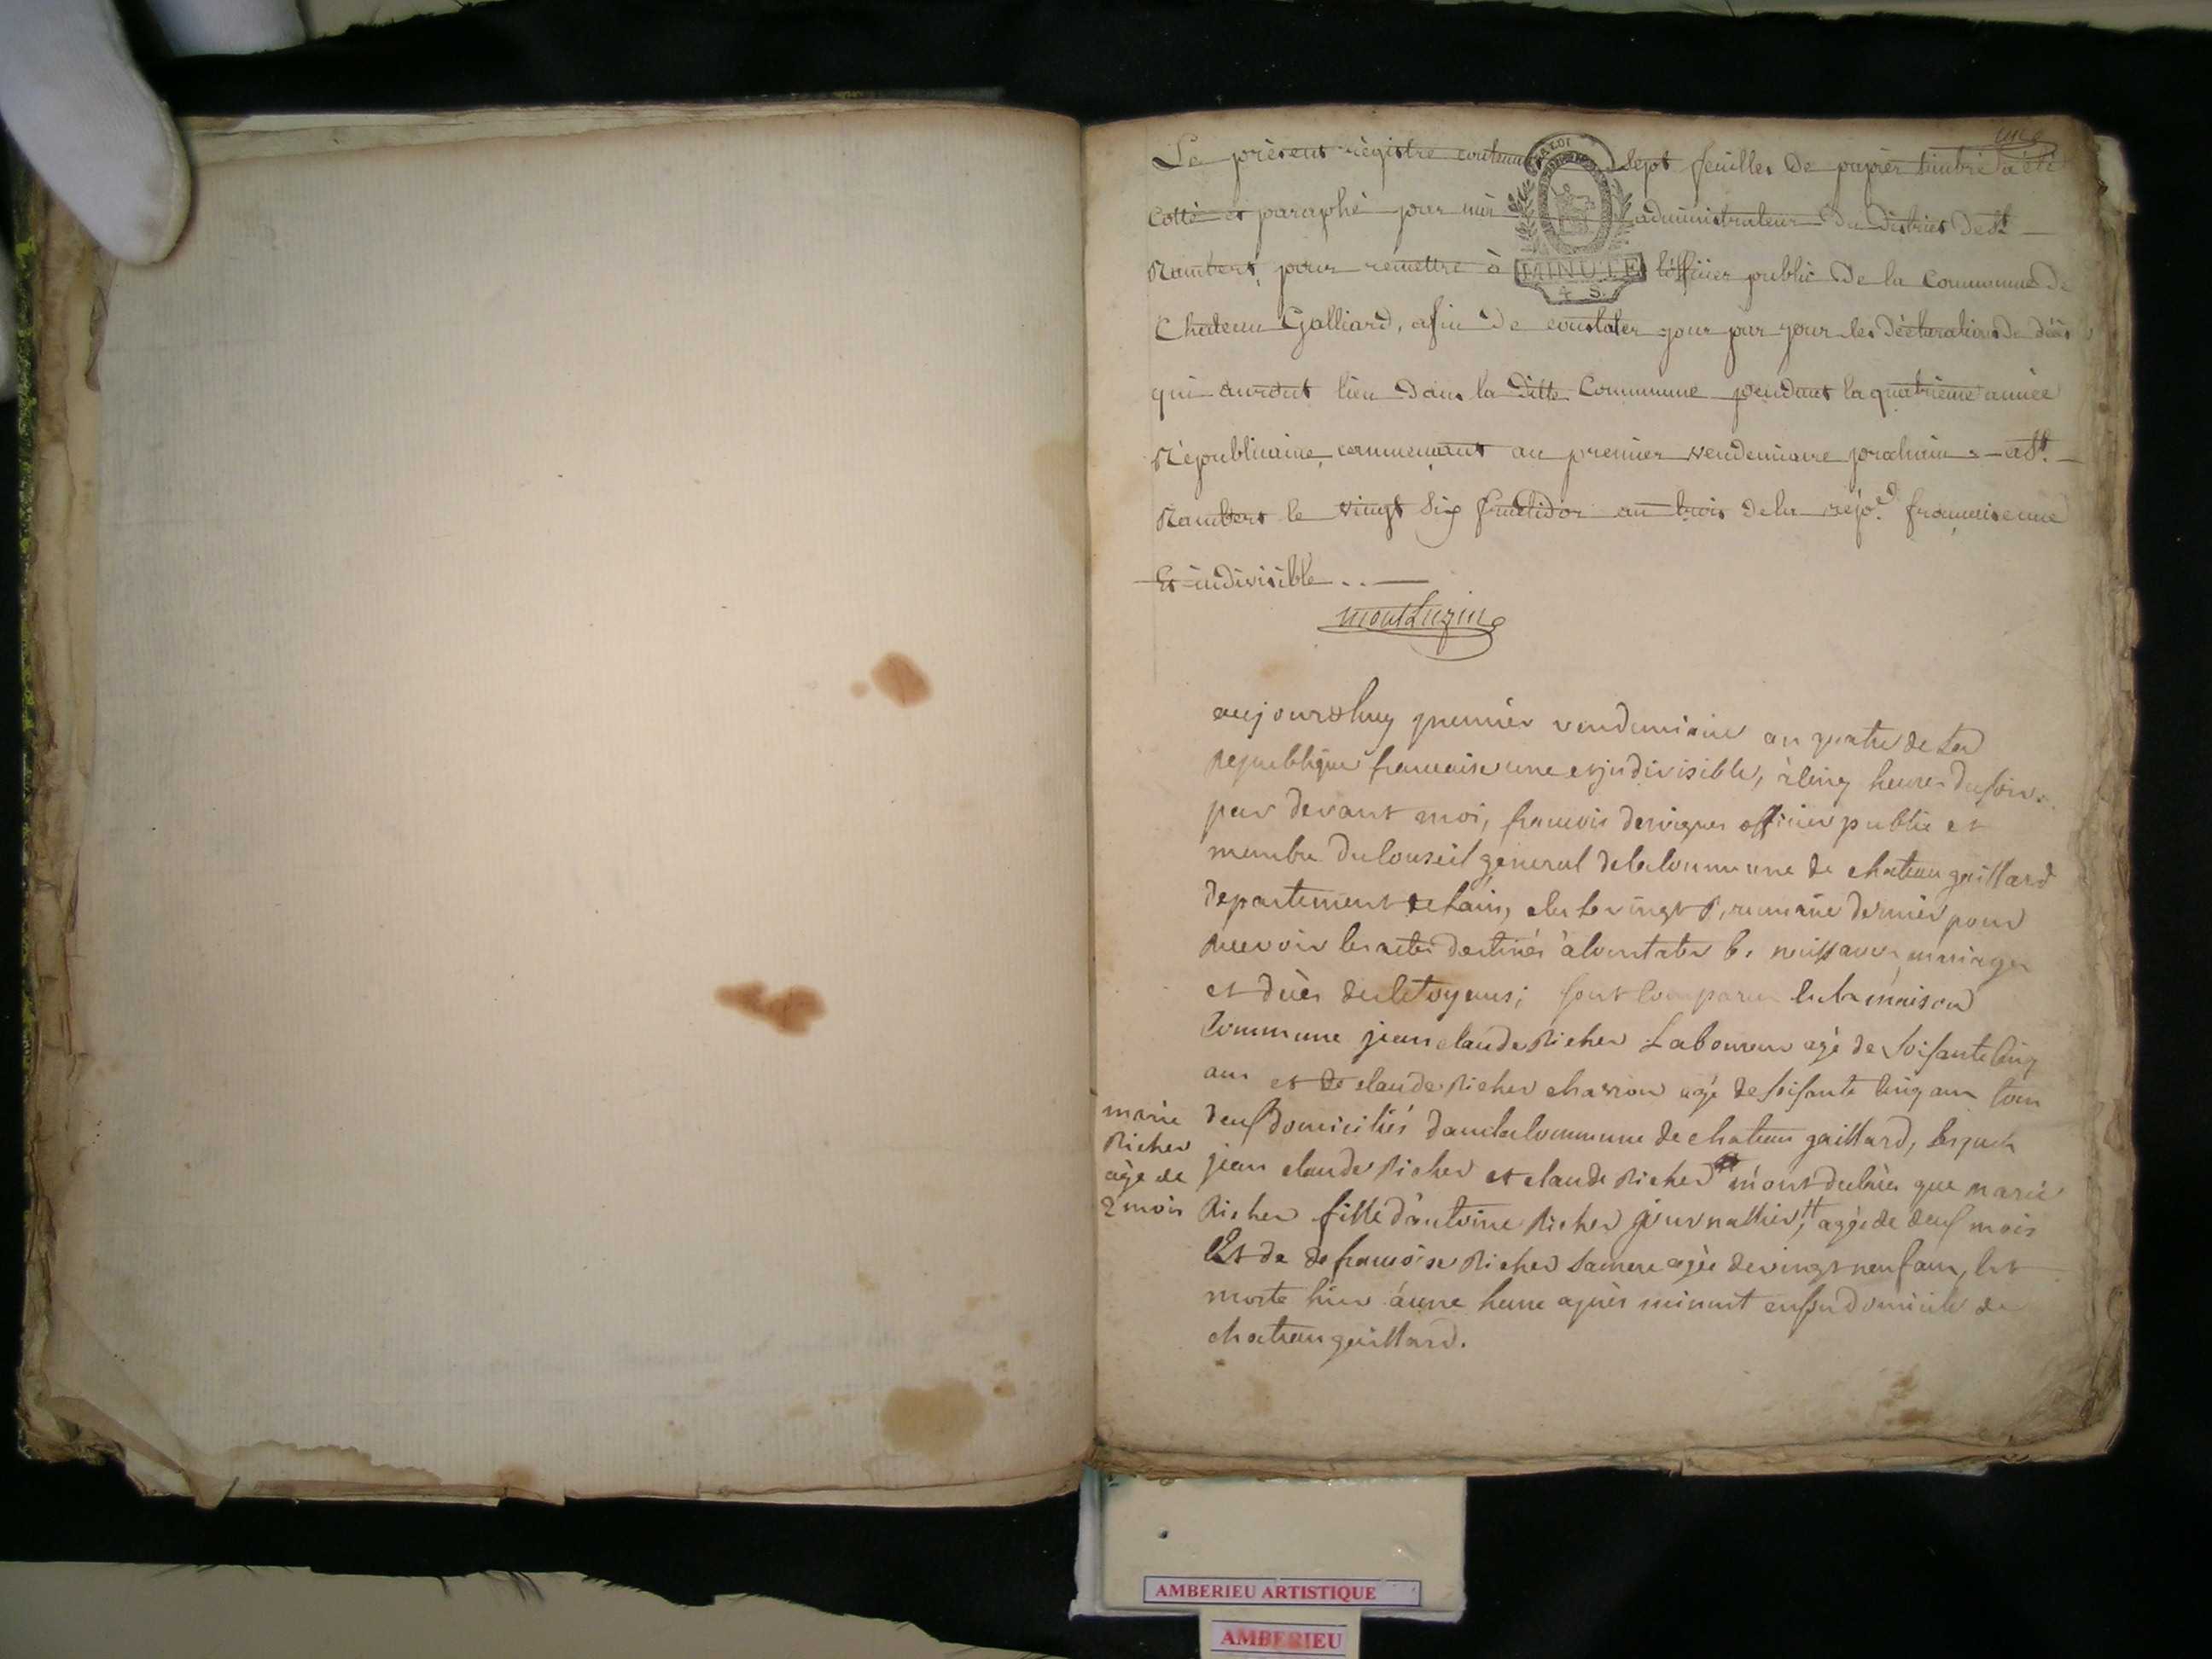 une
Le présent régistre contenant sept feuilles de papier timbré à été
Cotté et paraphé par moi administrateur du district de St
Rambert, pour remettre à l'officier public de la Commune de
Chateau Galliard, afin de constater jour par jour les déclarations de décés
qui auront lieu dans la ditte Commune pendant la quatrieme année
Républicaine, commencant au premier vendemiaire prochain - a St
Rambert le vingt six fructidor an trois de la rép.e francaise une
Et indivisible . . —
LA LOI
MINUTE
4 S.
montluzin
aujourdhuy premier vendemiaire an quatre de la
republique francaise une et indivisible, à cinq heures du soir
par devant moi, francois dervignes officier public et
membre du Conseil general de la Commune de chateau gaillard
departement de Lain, elu le vingt dernier pour
recevoir les actes destinés à Constater les naissances, mariages
et décès des Citoyens; sont Comparus en la maison
Commune jean claude Richer Laboureur agé de soisante Cinq
ans et de claude Richer charron agé de soisante Cinq ans tous
deus domiciliés dans la Commune de chateau gaillard, lesquels
jean claude Richer et claude Richer m'ont declaré que marie
Richer fille d'antoine Richer journallier, agée de deus mois
Et de de francoise Richer sa mere agée de vingt neuf ans, Est
morte hier à une heure après minuit en son domicile de
chateau gaillard.
marie
Richer
agé de
2 mois
AMBERIEU ARTISTIQUE
AMBERIEU